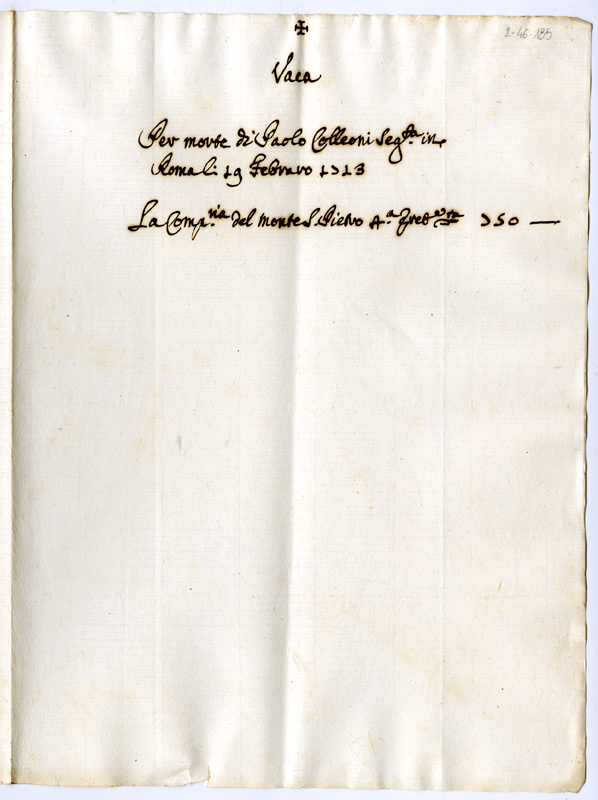 ✠
2-46-185
Vaca
Per morte di Paolo Colleoni Seg.ta in
Roma li 19 Febraro 1713
La Comp.ria del monte S. Pietro A.a 750 —